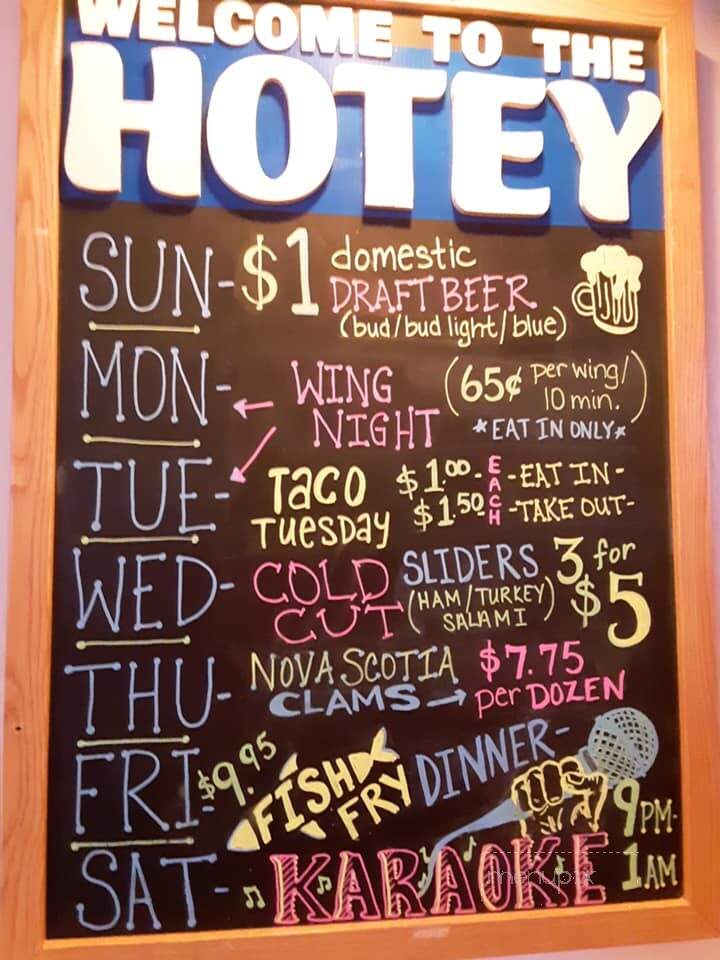 WELCOME TO THE
HOTEY
SUN- $1 domestic
DRAFT BEER
(bud/bud light/blue)
MON- WING NIGHT (65¢ per wing/
10 min.)
*EAT IN ONLY*
TUE- TACO TUESDAY $1.00- EACH -EAT IN-
$1.50 -TAKE OUT-
WED- COLD CUT SLIDERS 3 for $5
(HAM/TURKEY/
SALAMI)
THU- NOVA SCOTIA $7.75
CLAMS → per DOZEN
FRI- $9.95 FISH FRY DINNER-
SAT- KARAOKE 9PM-
1AM
menupix